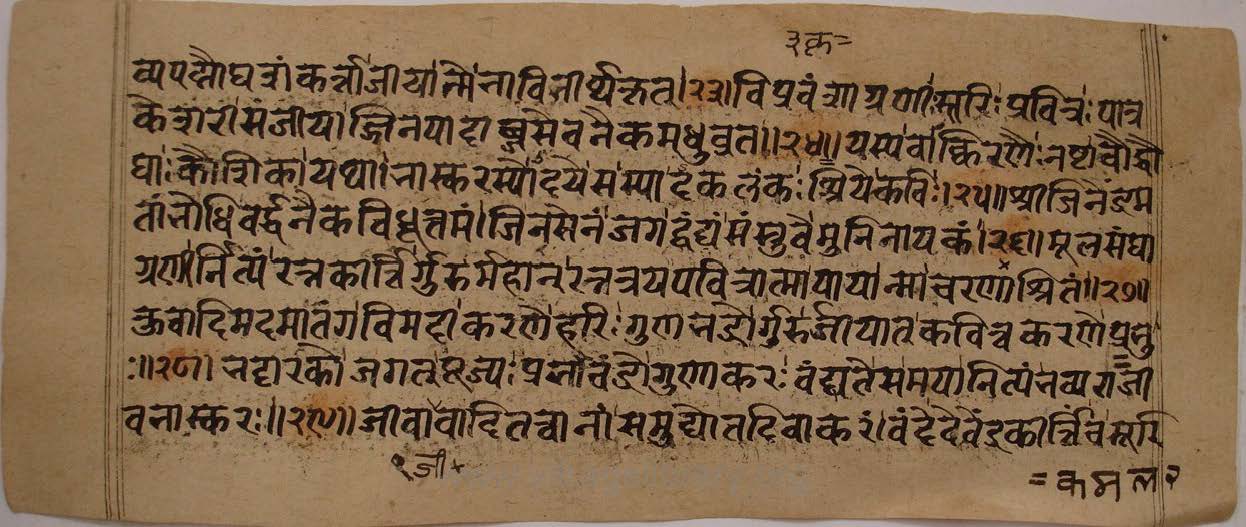 ३क=
व्यपन्नौघशंकर्त्ता जीयान्मे नाविनीर्थकृत्।२३।विप्रवंशाग्रणीःसूरिः प्रवित्रः पात्र
केशरी सं जीया जिनपादाब्जसेवनैकमधुव्रत॥२४॥यस्य वाक्किरणैः नष्टा वौद्धौ
घाः कौशिका यथा।भास्करस्योदये सस्यादकलंकः श्रियेकविः।२५॥श्रीजिनेंद्रम
तांभोधिवर्द्धनैकविधूत्तमं।जिनसेनं जगद्वंद्यं संस्तुवे मुनिनायकं।२६।मूलसंघा
ग्रणीर्नित्यं रत्नकीर्त्तिर्गुरुर्महान् रत्नत्रयपवित्रात्मा पायान्मां चरणाश्रितं॥२७॥
कुवादिमदमातंगविमदीकरणे हरिः गुणभद्रो गुरुर्जीयात् कवित्वकरणे प्रभु
ः॥२८। भट्टारको जगत्पूज्यः प्रभाचंद्रो गुणाकरः वंद्यते स मया नित्यं भव्यराजी
वभास्करः॥२९॥जीवाजीवादितत्वानां समुद्योतदिवाकरं।वंदे देवेंद्रकीर्त्तिं च सूरि
९जी+
=कमल२